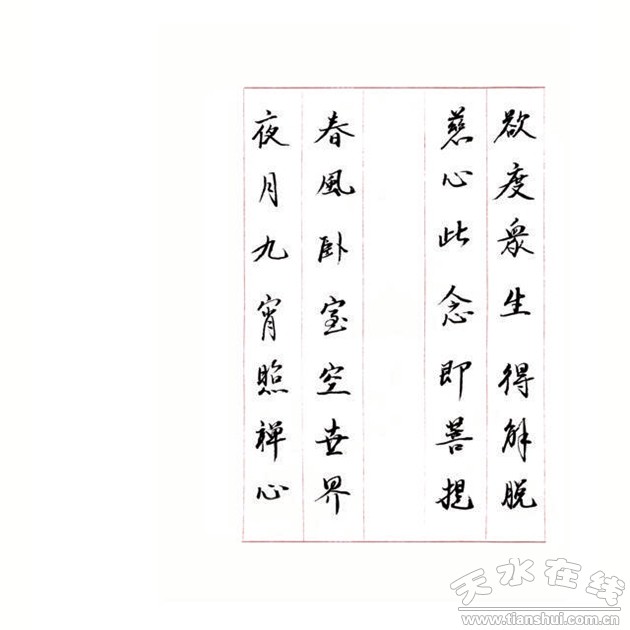 欲度眾生得解脫
慈心此念即菩提
春風卧室空世界
夜月九宵照禪心
天水在线
www.tianshui.com.cn